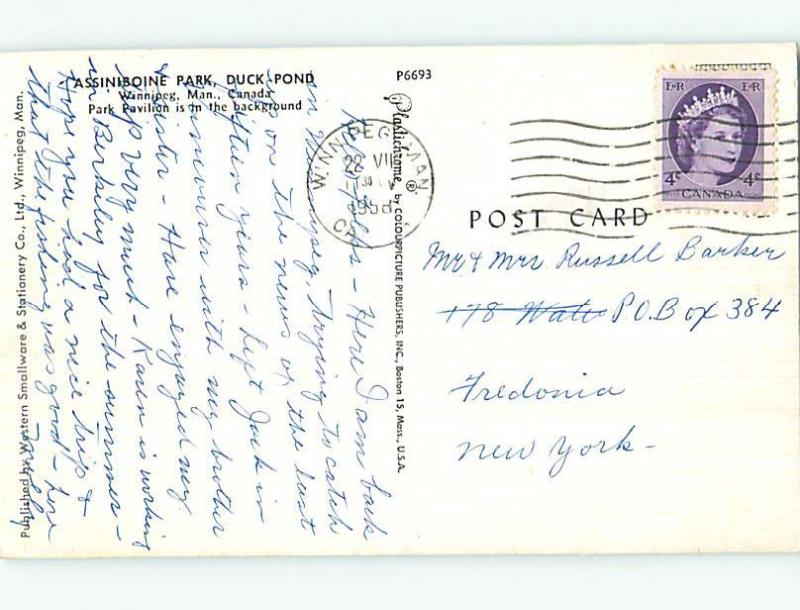 ASSINIBOINE PARK, DUCK POND
Winnipeg, Man., Canada
Park Pavilion is in the background
P6693
Published by Western Smallware & Stationery Co., Ltd., Winnipeg, Man.
Plastichrome ® by COLOURPICTURE PUBLISHERS, INC., Boston 15, Mass., U.S.A.
Here I am back
in Winnipeg, trying to catch
up on the news of the last
fifteen years - Left Jack in
Vancouver with my brother
& sister - Have enjoyed my
trip very much - Karen is working
in Berkeley for the summer -
Hope you had a nice trip &
that the fishing was good - Love
WINNIPEG MAN
22 VII
1958
E R
E R
4c
4c
CANADA
POST CARD
Mr & Mrs Russell Barker
178 P.O. Box 384
Fredonia
New York -